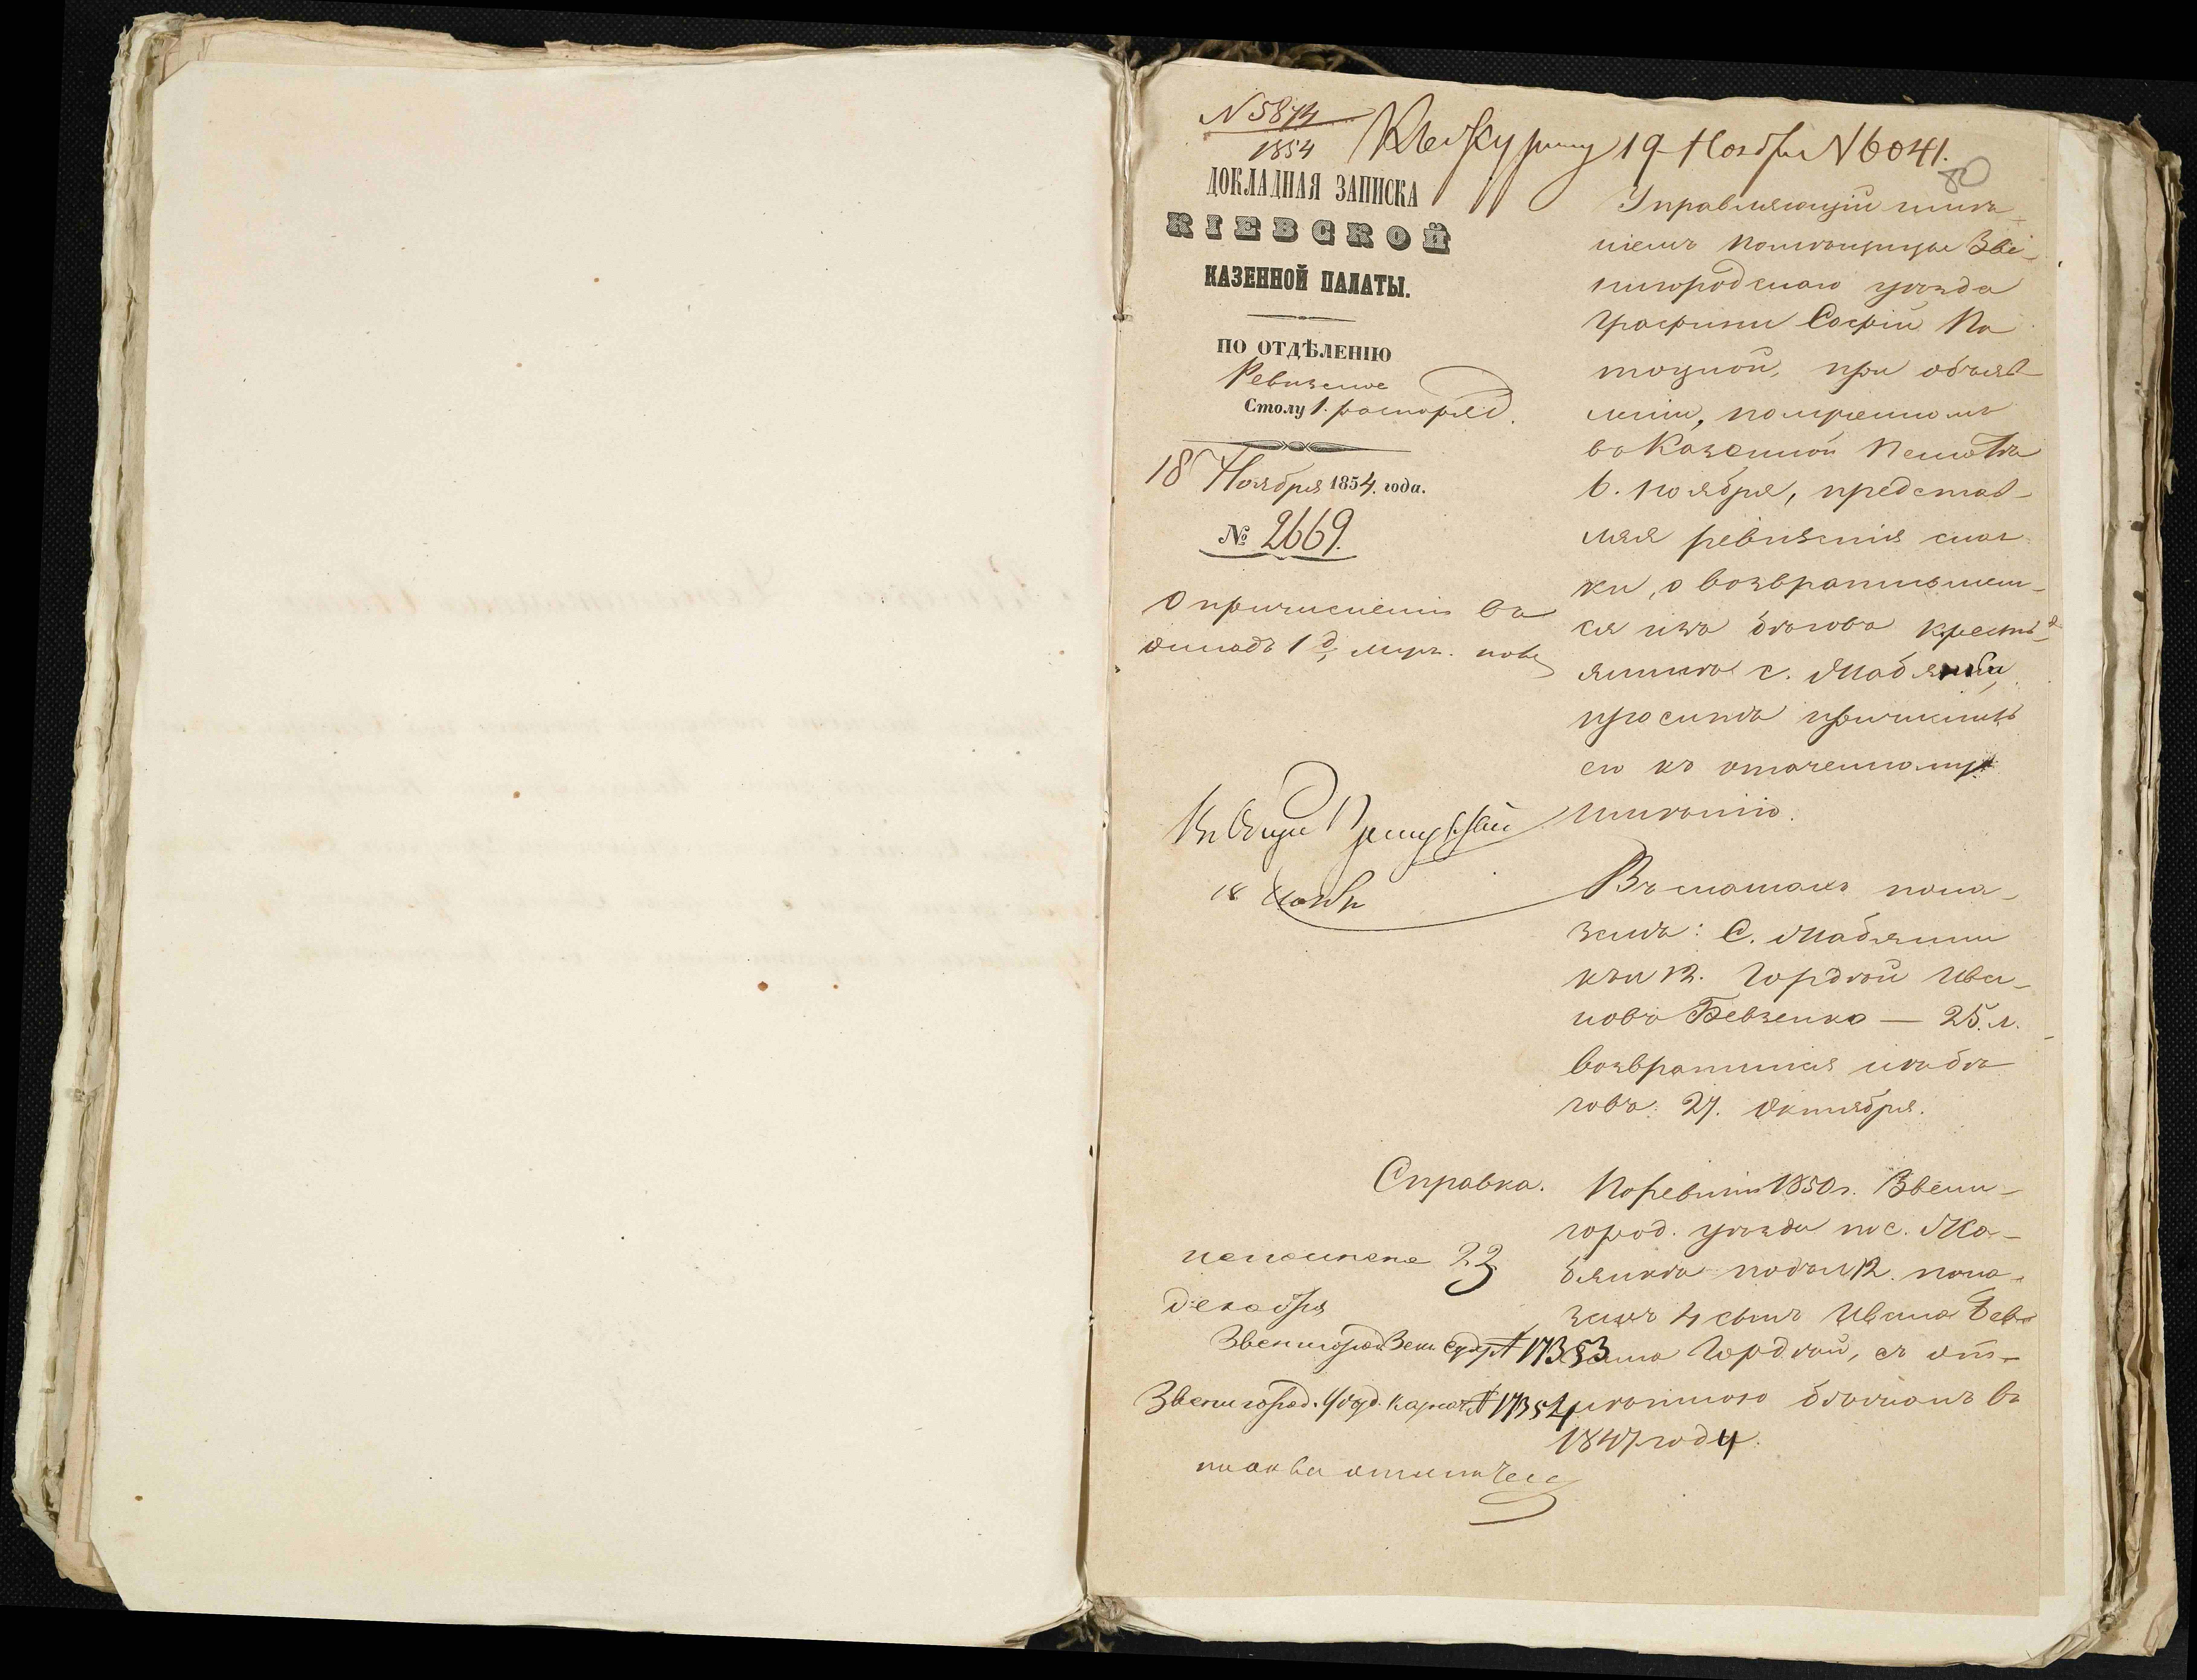 № 5874
1854
Къ журналу 19 Ноября № 6041.
80
ДОКЛАДНАЯ ЗАПИСКА
КІЕВСКОЙ
КАЗЕННОЙ ПАЛАТЫ.
ПО ОТДѢЛЕНІЮ
Ревизское
Столу 1. распоряд.
18 Ноября 1854. года.
№ 2669.
О причисленіи въ
окладъ 1 д. муж. пола
18 Нояб
Управляющій имѣ-
ніемъ помѣщицы Зве-
нигородскаго уѣзда
Графини Софіи По
тоцкой, при объяв
леніи, полученномъ
въ Казенной Палатѣ
6. ноября, представ-
ляя ревизскія сказ
ки, о возвратившем-
ся изъ бѣговъ кресть-
янинѣ с. Жабянки,
проситъ причислить
его къ означенному
имѣнію.
Въ сказкахъ пока-
занъ: С. Жабянки
12. Гордѣй Ива-
новъ Бевзенко — 25. л.
возвратился изъ бѣ
говъ 27. Октября.
Справка.
По ревизіи 1850 г. Звени-
город. уѣзда по с. Жа-
бянкѣ подъ № 12. пока-
занъ 4 сынъ Ивана Бев
Гордѣй, съ от-
мѣткою бѣжалъ въ
1847 году.
исполнено 23
декабря
Звенигород. Зем. суду № 17353
Звенигород. Уѣзд. Казнач. № 17354